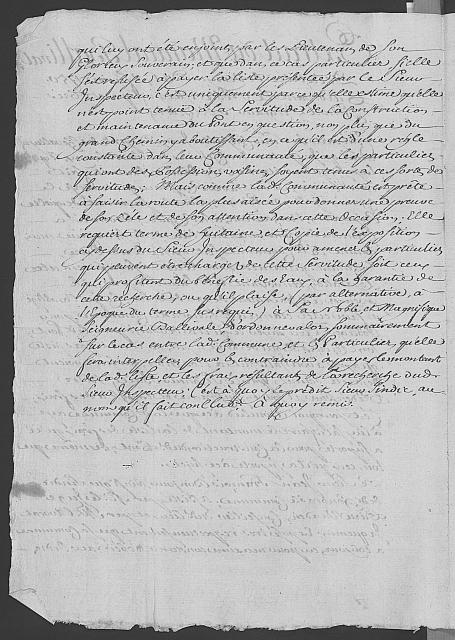 qui luy ont été enjoint par les Lieutenan, de Son
Glorieux Souverain, et que dan, ce cas particulier si elle
s'est refusée à payer la liste présentée par le Sieur
Inspecteur, c'est uniquement parce qu'elle estime qu'elle
n'est point tenue à la Servitude de la Construction
et maintenance du Pont en question, non plus que du
grand Chemin y aboutissant, en ce qu'il est d'une regle
constante dan, leur Communauté, que les particulier
qui ont des Possession, voisines, soyent tenus à ces sortes de
Servitude; Mais comme lad. Communauté est prête
à saisir la route la plus aisée pour donner une preuve
de son zele et de son attention dans cette occasion; Elle
requiert terme de huitaine et Copie de l'Exposition
ci dessus du Sieur Inspecteur pour amener le, particulier
qui peuvent etre charges de cette Servitude soit ceux
qui profitent du bénéfice des Eaux, à la garantie de
cette recherche, ou qu'il plaise, (par alternative, à
l'Epoque du terme susrequis) à Sa Noble et Magnifique
Seigneurie Baillivale d'ordonner alor, sommairement
sur le cas entre lad. Commune et le, Particulier, qu'elle
fera interpeller, pour les contraindre à payer le montant
de lad. liste et les frais resultant, de la recherche dud.
Sieur Inspecteur; C'est à quoy le prédit Sieur Sindic, au
nom qu'il fait conclud. à quoy remis.